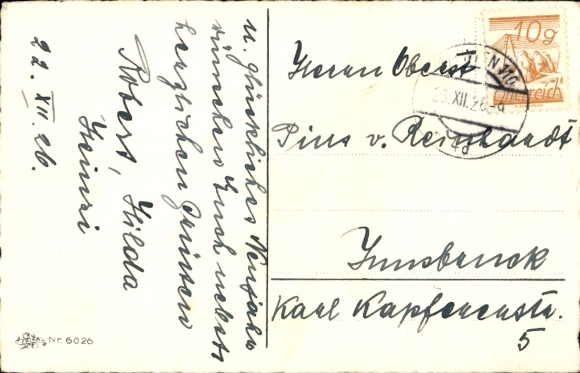 u. glückliches Neujahr
wünschen Euch nebst
herzlichen Grüssen
Robert, Hilda
Heinzi
22. XII. 26.
Nr. 6026
10g
Österreich
WIEN 110
23.XII.26-9
Herrn Oberst
Pius v. Reinhardt
Innsbruck
Karl Kapfererstr.
5